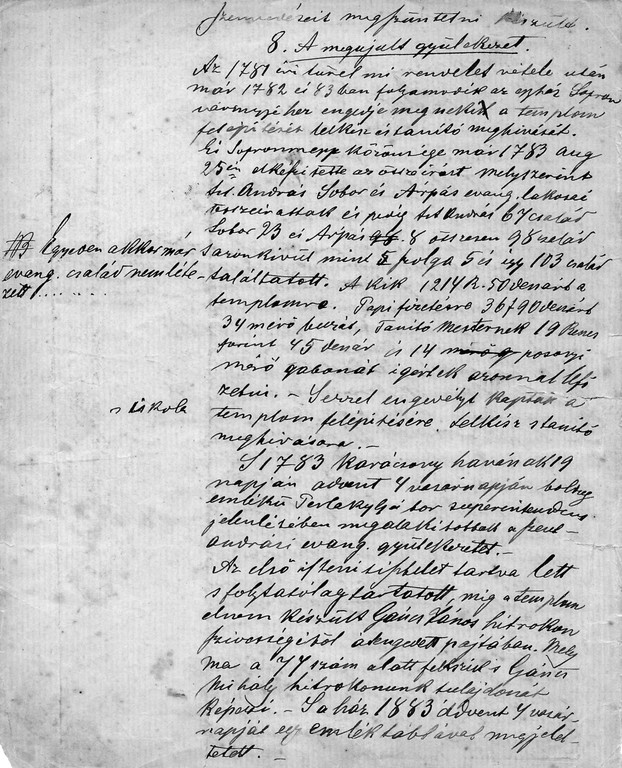 Szenvedéseit megszüntetni készült.
8. A megujult gyülekezet.
Az 1781 évi türelmi rendelet vétele után
már 1782 és 83ban folyamodik az egyház Sopron
vármegyéhez engedje meg nekik a templom
felepitését lelkész és tanitó meghivását.
És Sopronmegye közönsége már 1783 aug
25én elkészitette az összeirást melyszerint
szt. András Sobor és Árpás evang. lakosai
és pedig szt András 67 család
Sobor 23 és Árpás 8 összesen 98 család
azonkivül mint polgá 5 és igy 103 család
találtatott. A kik 1214 R. 50 denárt a
templomra. Papi fizetésre 36 f 90 denárt
34 mérő buzát, Tanitó Mesternek 19 Renes
forint 45 denár és 14 posonyi
mérő gabonát igértek azonnal lefi
zetni. - S ezzel engedélyt kaptak a
templom felépitésére. Lelkész s tanitó
meghivására. -
S 1783 Karácsony havának 19
napján advent 4 vasárnapján boldog
emlékü Perlaky Gábor superintendens
jelenlétében megalakittatott a szent-
andrási evang. gyülekezet. -
Az első istenitisztelet tartva lett
s folytatólag tartatott, mig a templom
elnem készült Gáncs János hitrokon
szivességéből átengedett pajtában. Mely
ma a 74 szám alatt fekszik s Gáncs
Mihály hitrokonunk tulajdonát
képezi. - S a ház 1883 advent 4 vasár-
napját egy emléktáblával megjelöl-
tetett. -
Egyeden akkor már
evang. család nem léte-
zett ........
s iskola